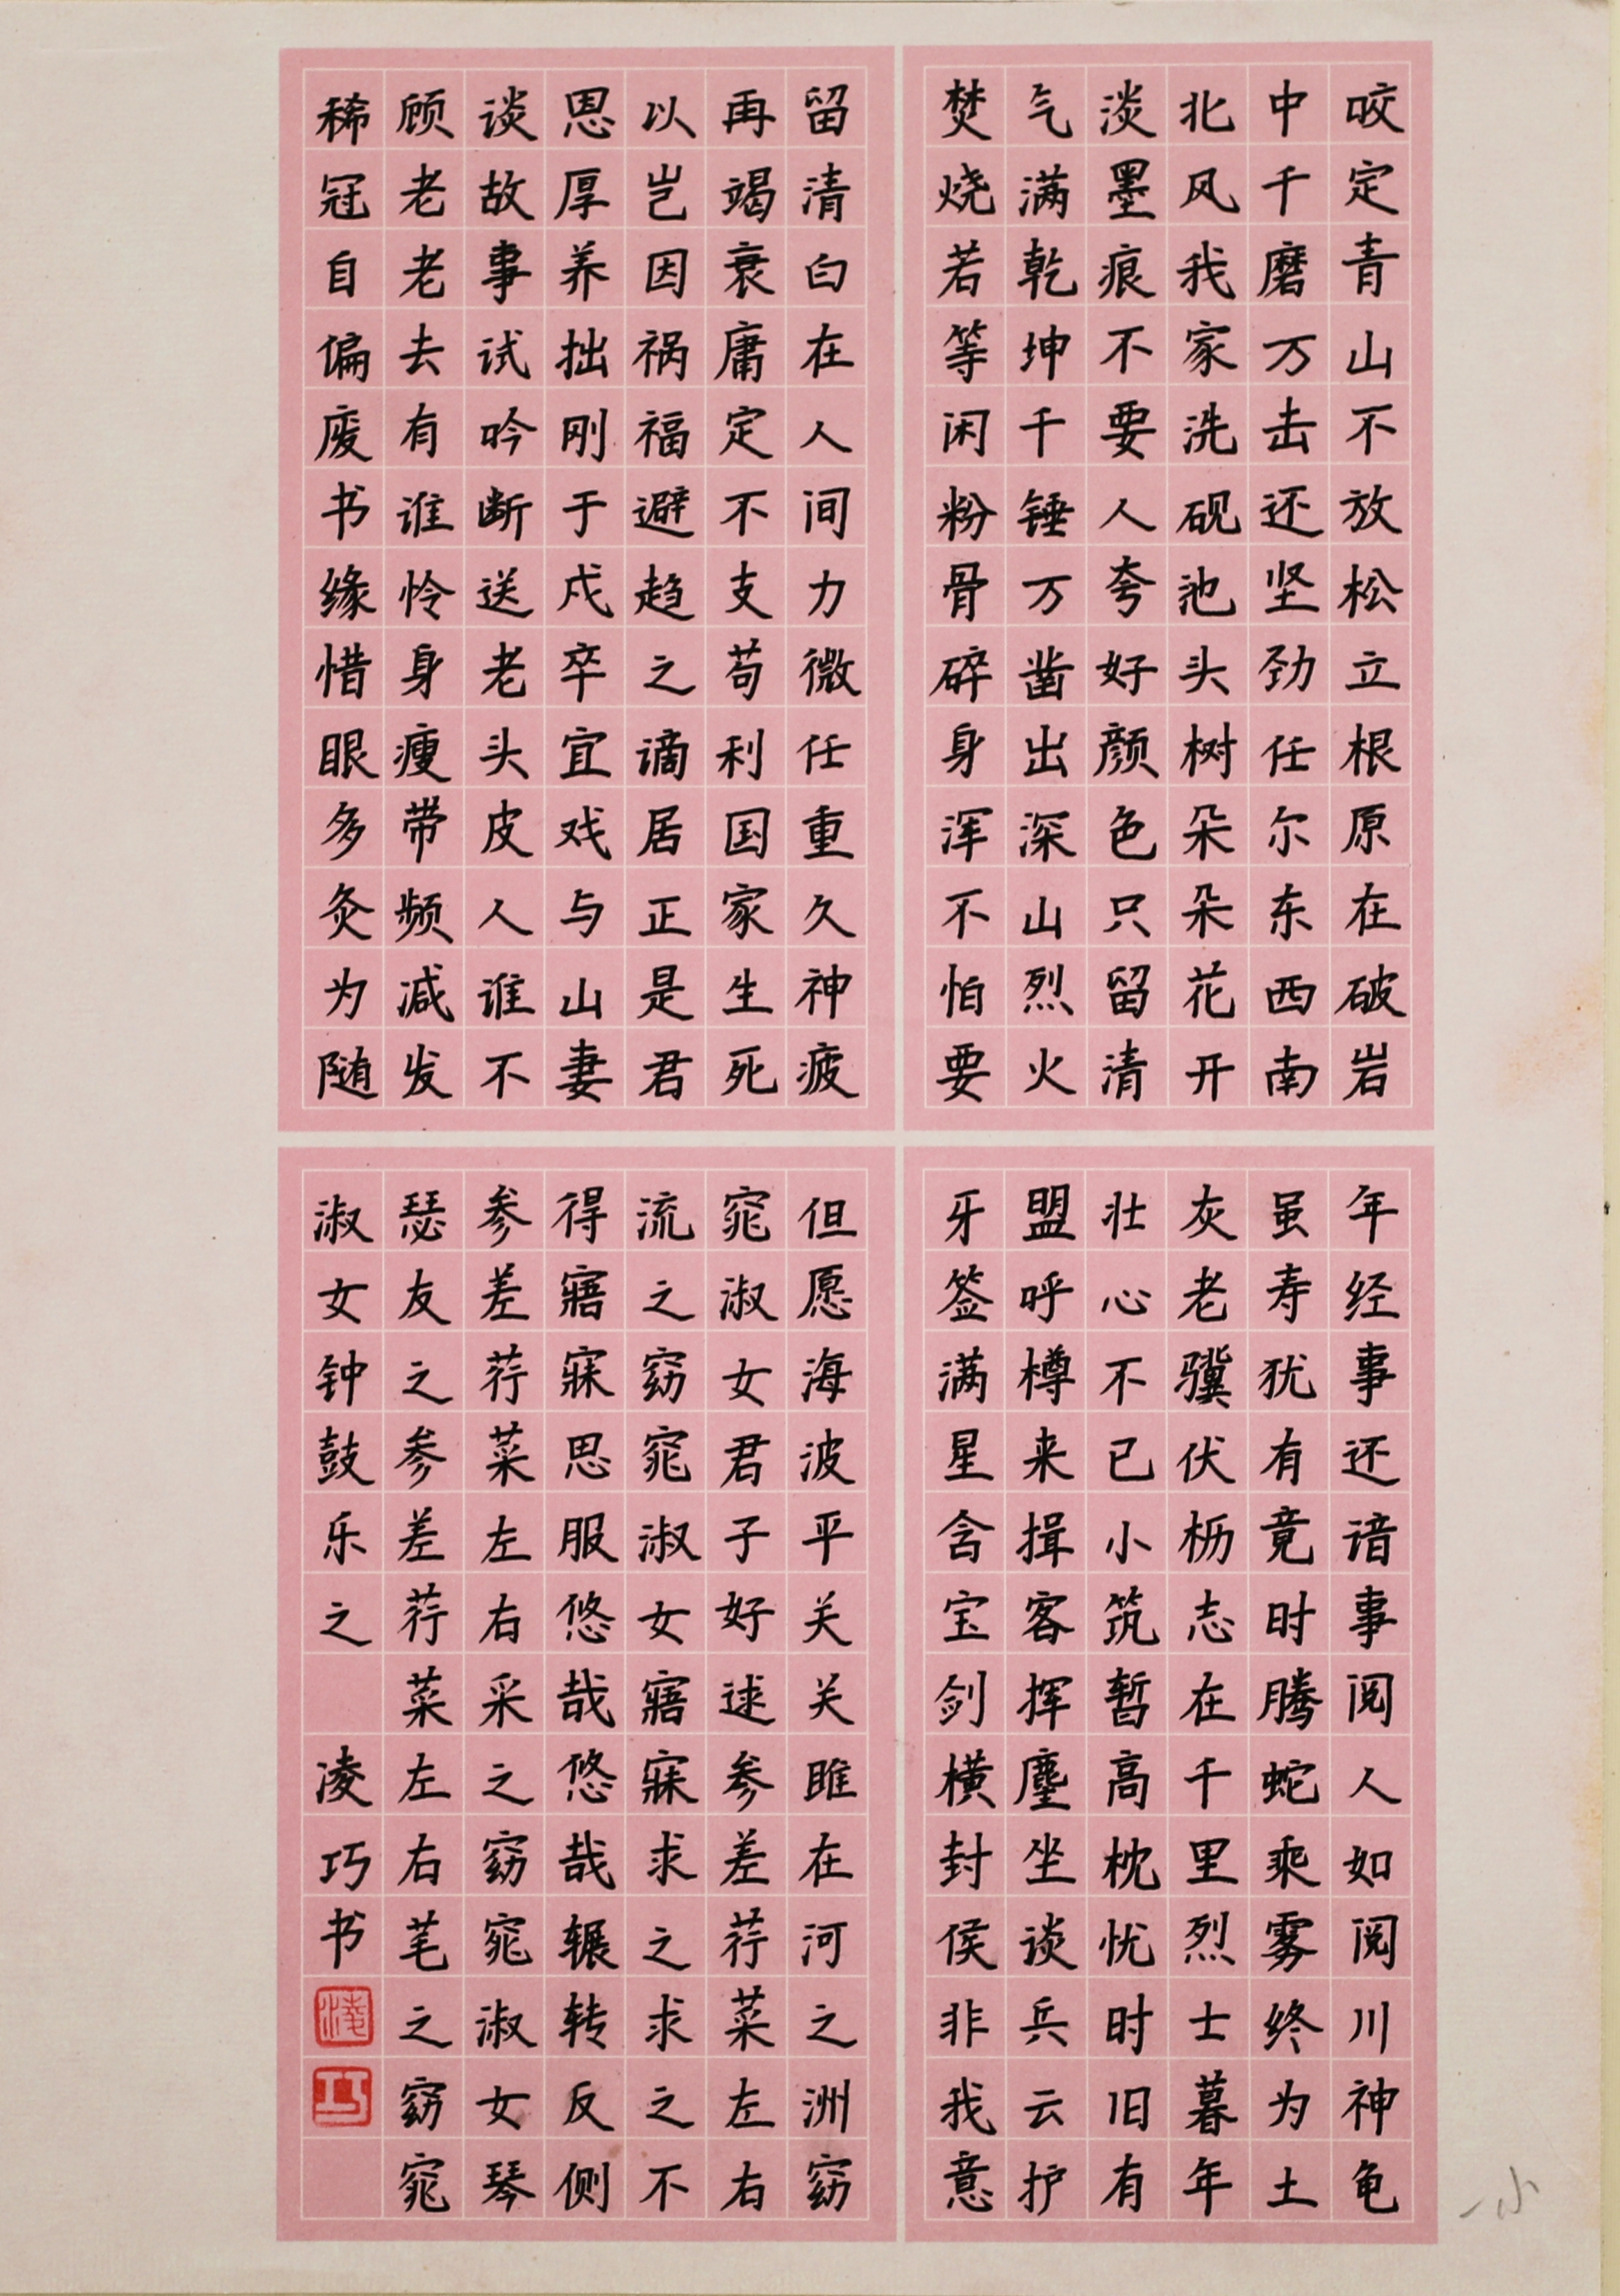 咬定青山不放松立根原在破岩
中千磨万击还坚劲任尔东西南
北风我家洗砚池头树朵朵花开
淡墨痕不要人夸好颜色只留清
气满乾坤千锤万凿出深山烈火
焚烧若等闲粉骨碎身浑不怕要
留清白在人间力微任重久神疲
再竭衰庸定不支苟利国家生死
以岂因祸福避趋之谪居正是君
恩厚养拙刚于戍卒宜戏与山妻
谈故事试吟断送老头皮人谁不
顾老老去有谁怜身瘦带频减发
稀冠自偏废书缘惜眼多灸为随
年经事还谙事阅人如阅川神龟
虽寿犹有竟时腾蛇乘雾终为土
灰老骥伏枥志在千里烈士暮年
壮心不已小筑暂高枕忧时旧有
盟呼樽来揖客挥麈坐谈兵云护
牙签满星含宝剑横封侯非我意
但愿海波平关关雎在河之洲窈
窕淑女君子好逑参差荇菜左右
流之窈窕淑女寤寐求之求之不
得寤寐思服悠哉悠哉辗转反侧
参差荇菜左右采之窈窕淑女琴
瑟友之参差荇菜左右芼之窈窕
淑女钟鼓乐之 凌巧书
凌
巧
一小